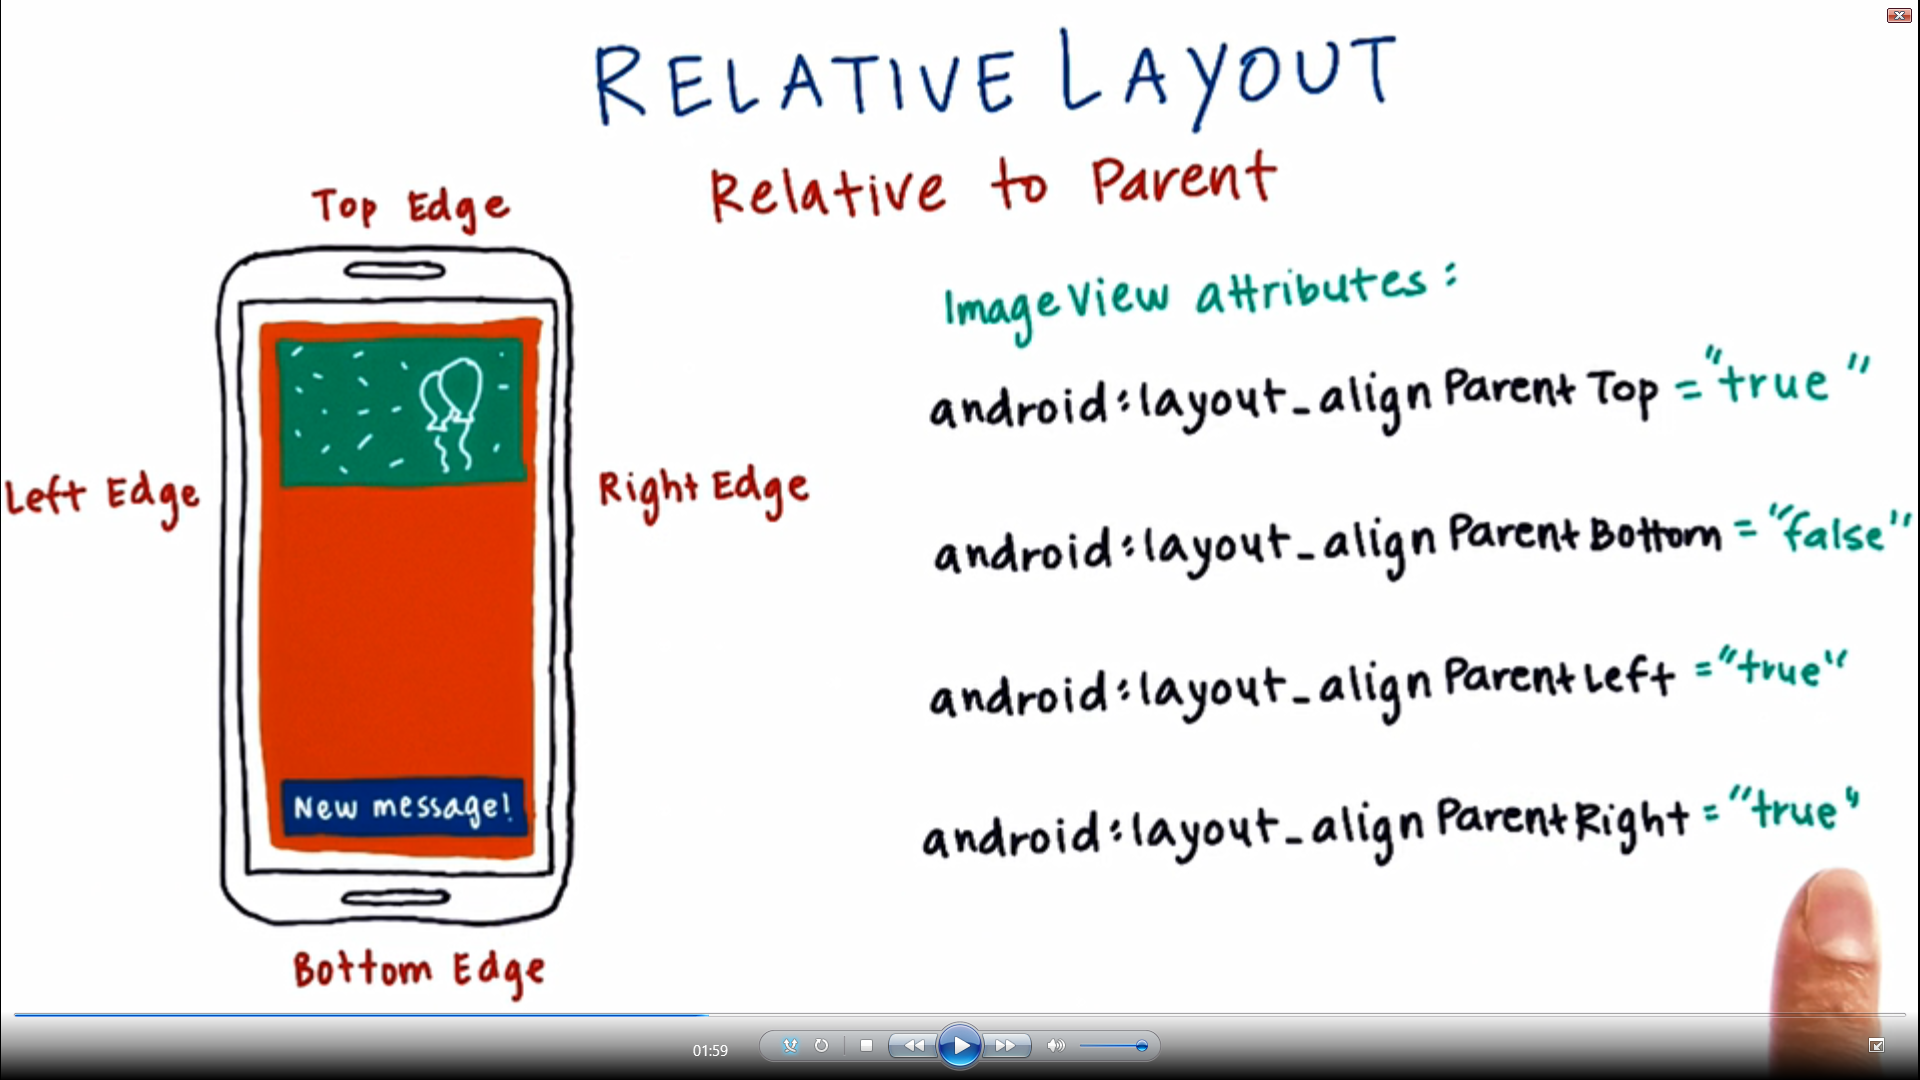 RELATIVE LAYOUT
Relative to Parent
Top Edge
Left Edge
Right Edge
New message!
Bottom Edge
ImageView attributes:
android:layout_alignParentTop = "true"
android:layout_alignParentBottom = "false"
android:layout_alignParentLeft = "true"
android:layout_alignParentRight = "true"
01:59